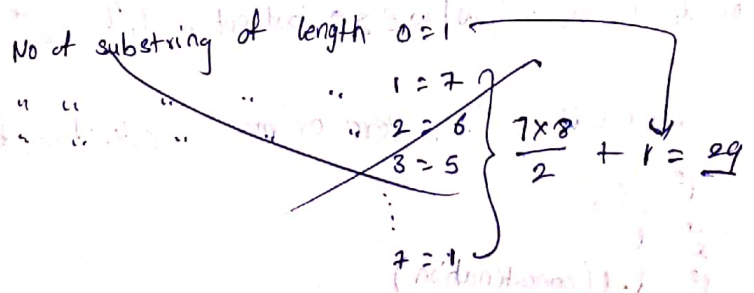 No of substring of length 0 = 1
" " " " " 1 = 7
" " " " " 2 = 6
3 = 5
⋮
7 = 1
7 × 8 / 2 + 1 = 29